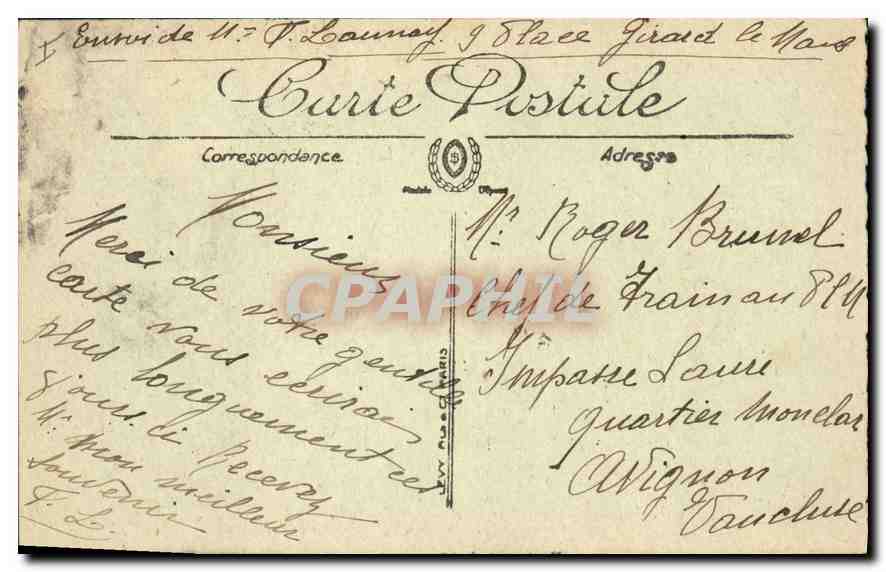 Envoi de Mr F. Launay 9 Place Girard le Mans
Carte Postale
Correspondance
Adresse
Monsieur
Merci de votre gentille
carte vous écrirai
plus longuement ces
jours ci Recevez
Mr mon meilleur
souvenir
F. L.
Mr. Roger Brunel
Chef de Train au PLM
Impasse Laure
quartier Monclar
Avignon
Vaucluse
LEVY Fils & Cie PARIS
CPAPHIL